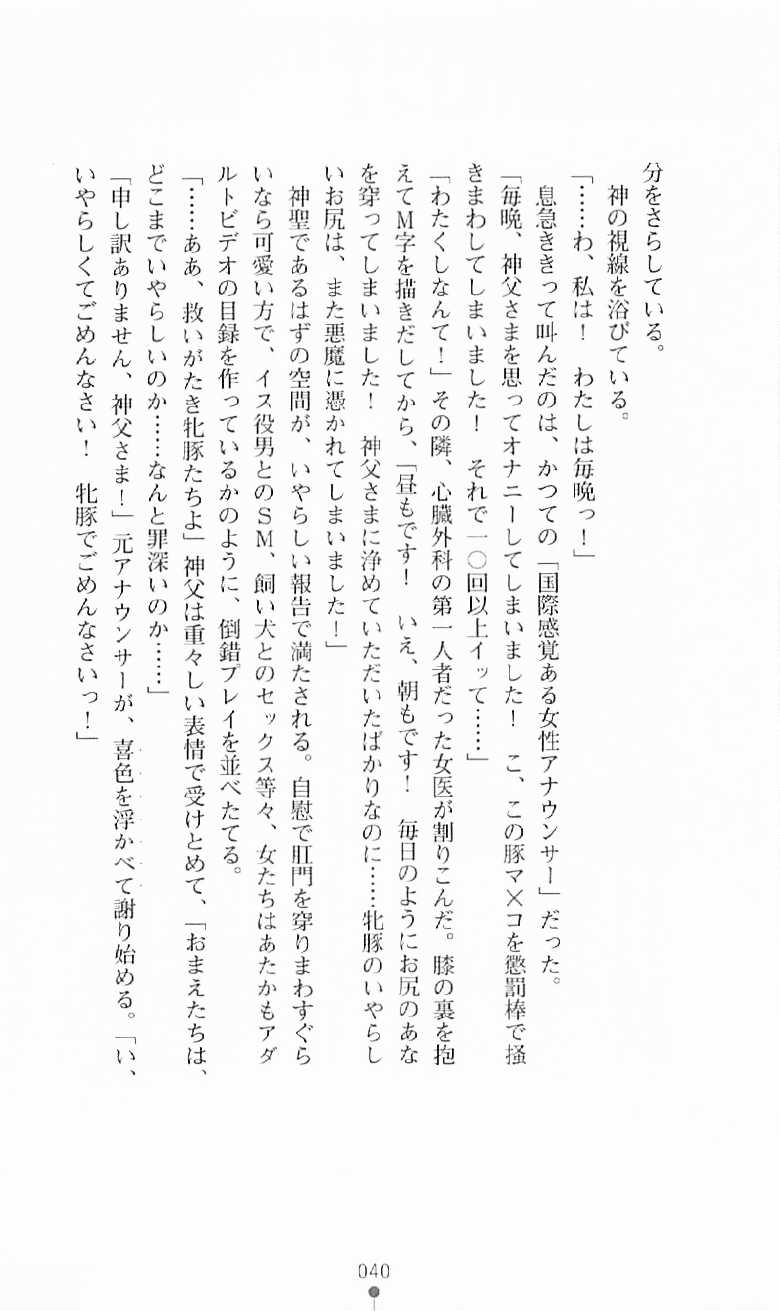 分をさらしている。
　神の視線を浴びている。
「……わ、私は！　わたしは毎晩っ！」
　息急ききって叫んだのは、かつての「国際感覚ある女性アナウンサー」だった。
「毎晩、神父さまを思ってオナニーしてしまいました！　こ、この豚マ×コを懲罰棒で掻
きまわしてしまいました！　それで一〇回以上イッて……」
「わたくしなんて！」その隣、心臓外科の第一人者だった女医が割りこんだ。膝の裏を抱
えてＭ字を描きだしてから、「昼もです！　いえ、朝もです！　毎日のようにお尻のあな
を穿ってしまいました！　神父さまに浄めていただいたばかりなのに……牝豚のいやらし
いお尻は、また悪魔に憑かれてしまいました！」
　神聖であるはずの空間が、いやらしい報告で満たされる。自慰で肛門を穿りまわすぐら
いなら可愛い方で、イス役男とのＳＭ、飼い犬とのセックス等々、女たちはあたかもアダ
ルトビデオの目録を作っているかのように、倒錯プレイを並べたてる。
「……ああ、救いがたき牝豚たちよ」神父は重々しい表情で受けとめて、「おまえたちは、
どこまでいやらしいのか……なんと罪深いのか……」
「申し訳ありません、神父さま！」元アナウンサーが、喜色を浮かべて謝り始める。「い、
いやらしくてごめんなさい！　牝豚でごめんなさいっ！」
040